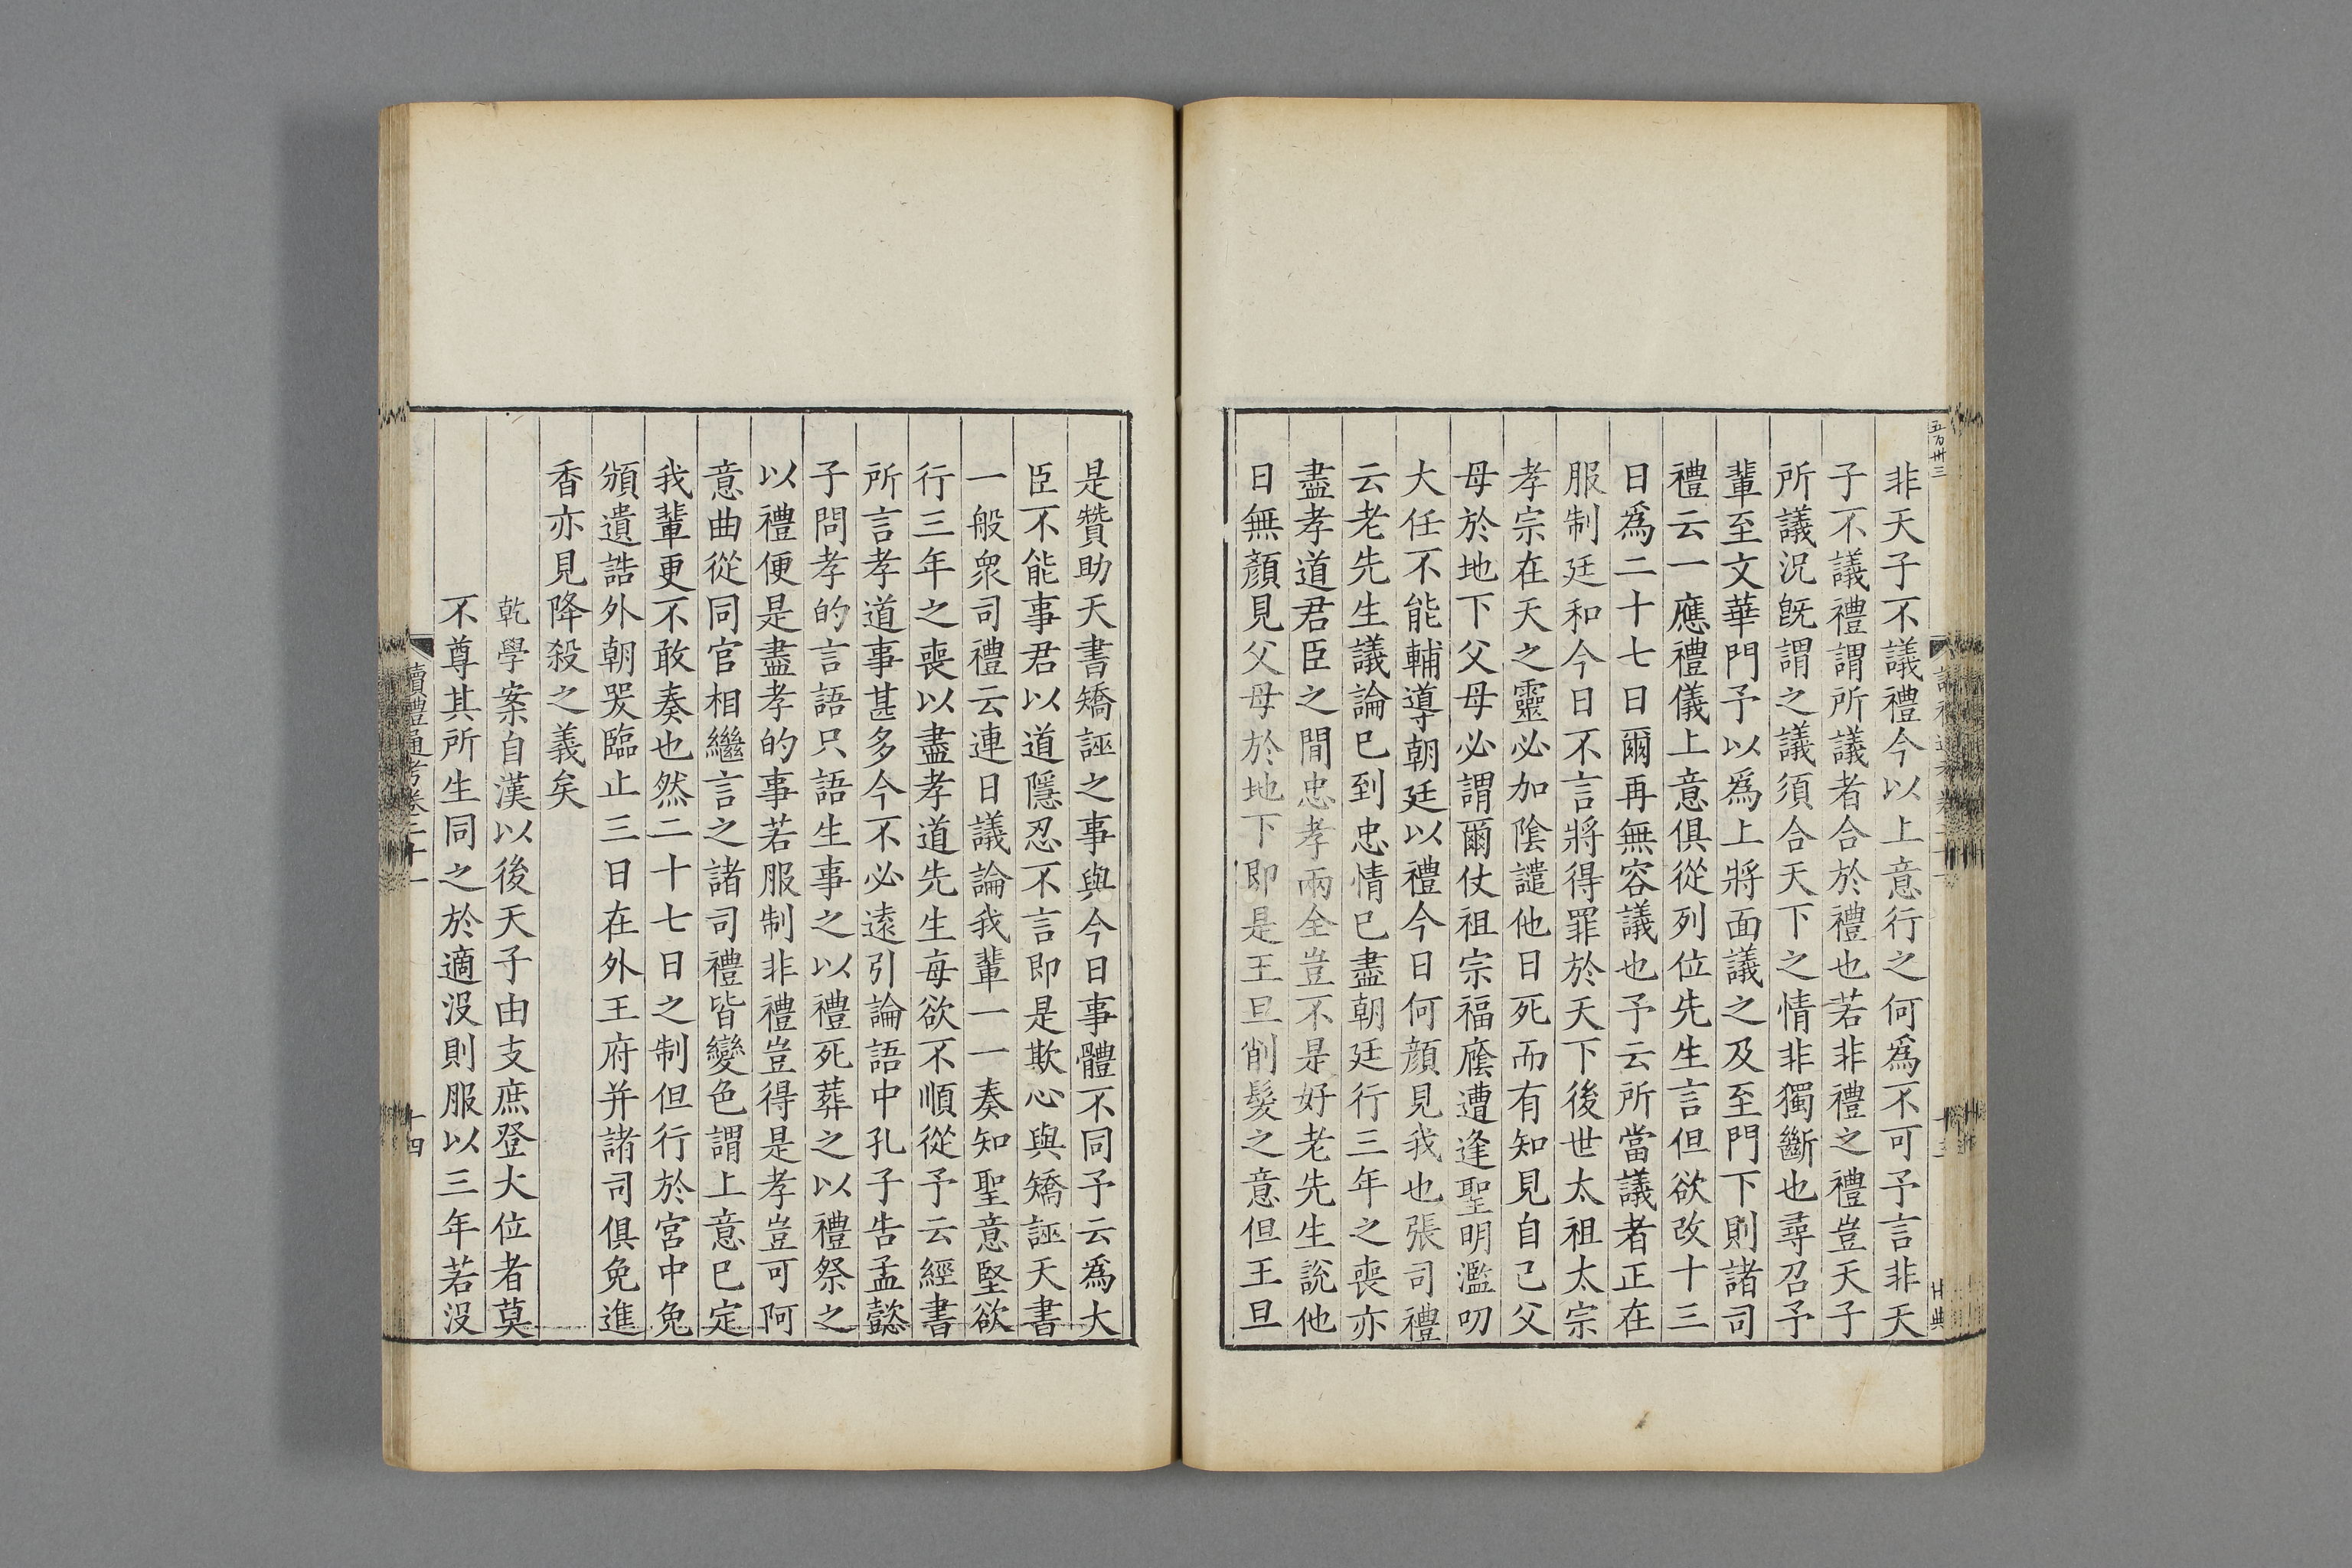 五百卅三
非天子不議禮今以上意行之何爲不可予言非天
子不議禮謂所議者合於禮也若非禮之禮豈天子
所議況旣謂之議須合天下之情非獨斷也尋召予
輩至文華門予以爲上將面議之及至門下則諸司
禮云一應禮儀上意俱從列位先生言但欲改十三
日爲二十七日爾再無容議也予云所當議者正在
服制廷和今日不言將得罪於天下後世太祖太宗
孝宗在天之靈必加隂譴他日死而有知見自己父
母於地下父母必謂爾仗祖宗福廕遭逢聖明濫叨
大任不能輔導朝廷以禮今日何顔見我也張司禮
云老先生議論已到忠情已盡朝廷行三年之喪亦
盡孝道君臣之間忠孝兩全豈不是好老先生說他
日無顔見父母於地下即是王旦削髮之意但王旦
是贊助天書矯誣之事與今日事體不同予云爲大
臣不能事君以道隱忍不言即是欺心與矯誣天書
一般衆司禮云連日議論我輩一一奏知聖意堅欲
行三年之喪以盡孝道先生每欲不順從予云經書
所言孝道事甚多今不必遠引論語中孔子告孟懿
子問孝的言語只語生事之以禮死葬之以禮祭之
以禮便是盡孝的事若服制非禮豈得是孝豈可阿
意曲從同官相繼言之諸司禮皆變色謂上意已定
我輩更不敢奏也然二十七日之制但行於宮中免
頒遺誥外朝哭臨止三日在外王府并諸司俱免進
香亦見降殺之義矣
乾學案自漢以後天子由支庶登大位者莫
不尊其所生同之於適沒則服以三年若沒
讀禮通考卷二十一
十四